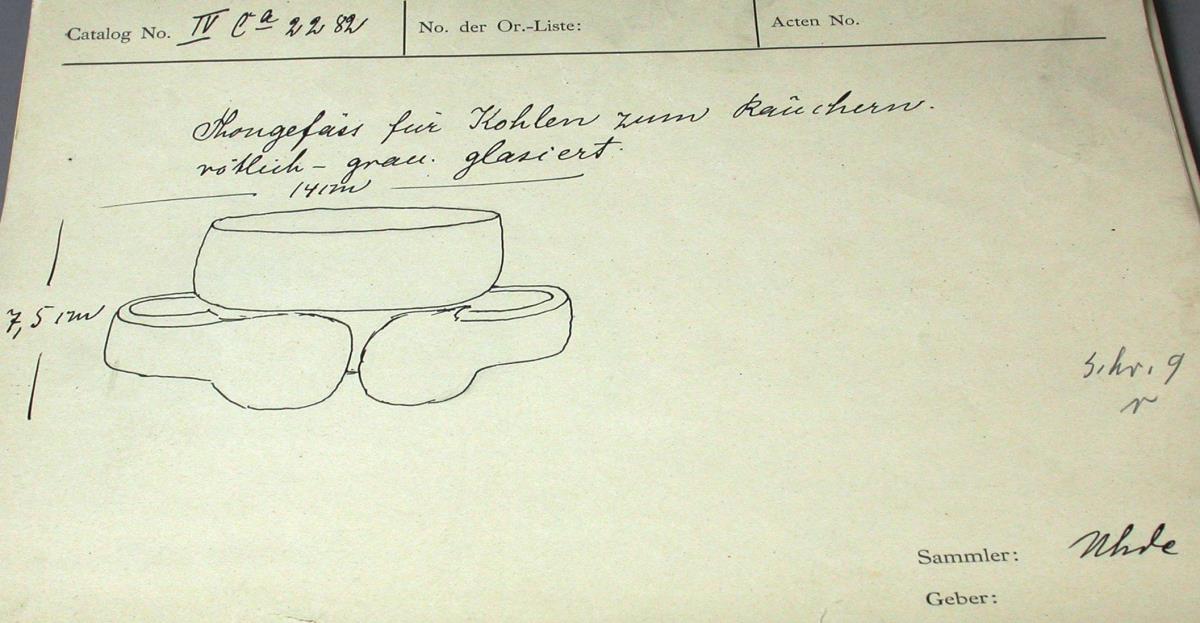 Catalog No. IV Ca 2282 No. der Or.-Liste: Acten No.
Thongefäss für Kohlen zum Räuchern.
rötlich-grau. glasiert.
14 cm
7,5 cm
Schr. 9
r
Sammler: Uhde
Geber: